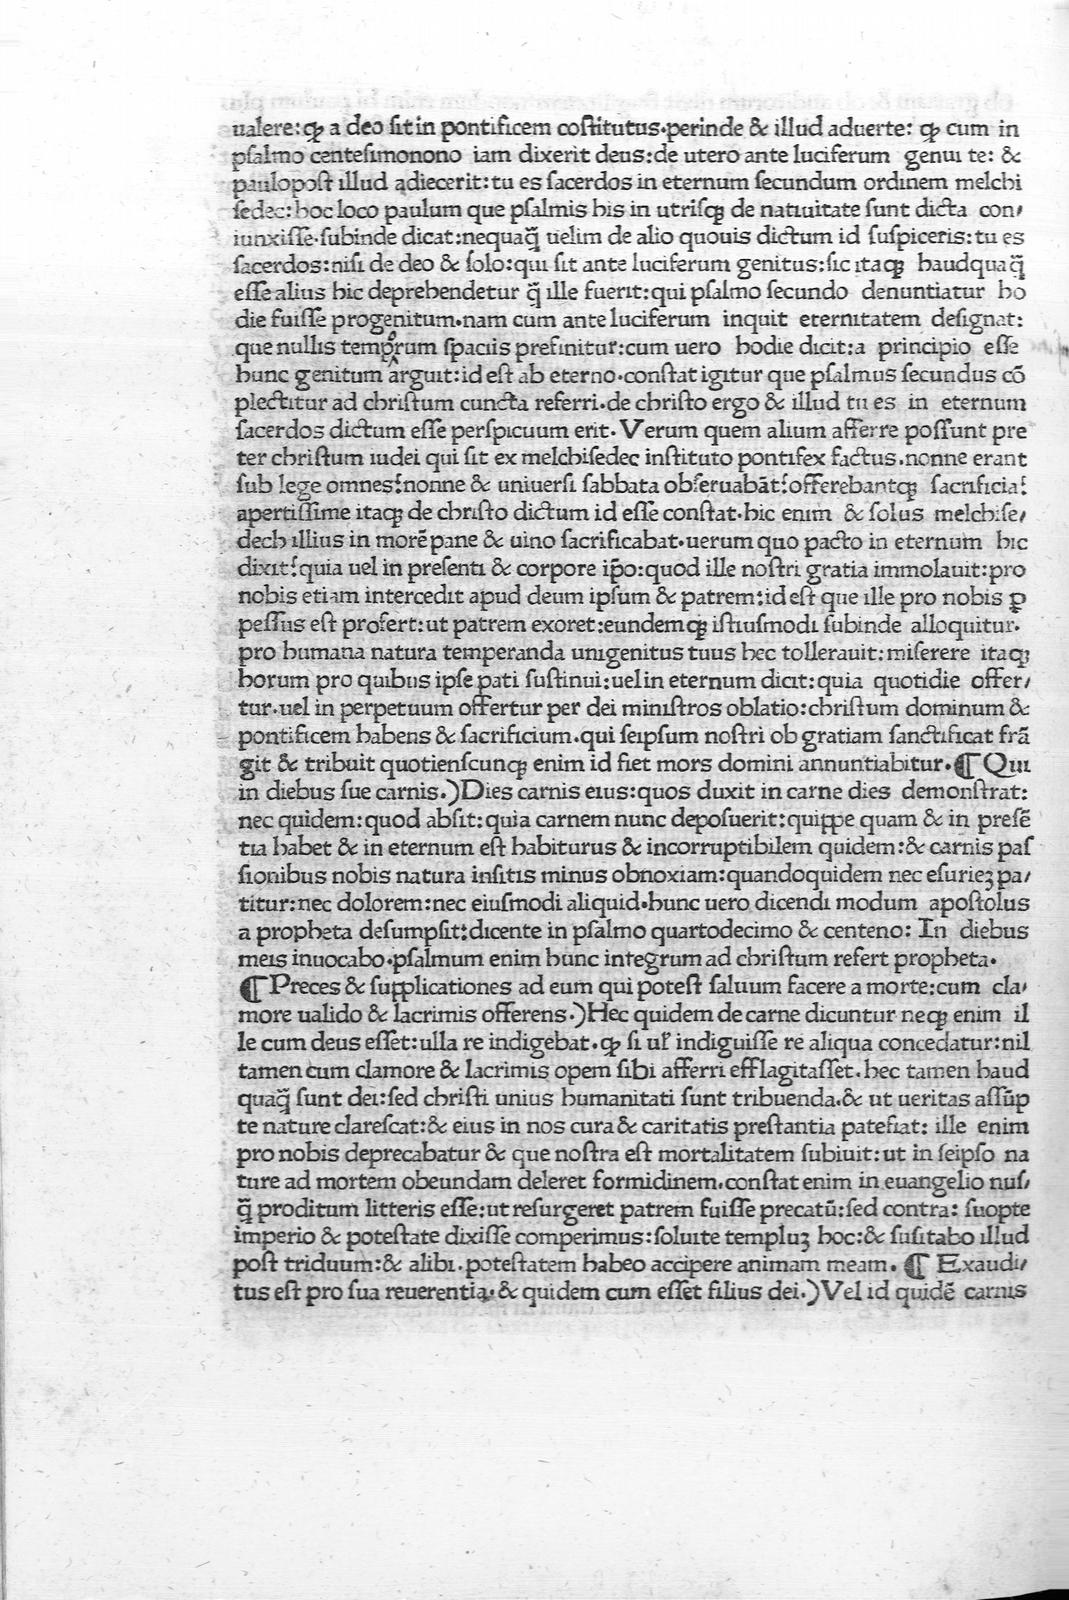 ualere:ꝙ a deo ſit in pontificem coſtitutus.perinde & illud aduerte: ꝙ cum in
pſalmo centeſimonono iam dixerit deus:de utero ante luciferum genui te: &
paulopoſt illud adiecerit:tu es ſacerdos in eternum ſecundum ordinem melchi
ſedec:hoc loco paulum que pſalmis his in utriſqꝫ de natiuitate ſunt dicta con/
iunxiſſe.ſubinde dicat:nequaq̃ uelim de alio quouis dictum id ſuſpiceris:tu es
ſacerdos:niſi de deo & ſolo:qui ſit ante luciferum genitus:ſic itaqꝫ haudquaq̃
eſſe alius hic deprehendetur q̃ ille fuerit:qui pſalmo ſecundo denuntiatur ho
die fuiſſe progenitum.nam cum ante luciferum inquit eternitatem deſignat:
que nullis temporum ſpaciis prefinitur:cum uero hodie dicit:a principio eſſe
hunc genitum arguit:id eſt ab eterno.conſtat igitur que pſalmus ſecundus cõ
plectitur ad chriſtum cuncta referri.de chriſto ergo & illud tu es in eternum
ſacerdos dictum eſſe perſpicuum erit. Verum quem alium afferre poſſunt pre
ter chriſtum iudei qui ſit ex melchiſedec inſtituto pontifex factus.nonne erant
ſub lege omnes?nonne & uniuerſi ſabbata obſeruabãt?offerebantqꝫ ſacrificia?
apertiſſime itaqꝫ de chriſto dictum id eſſe conſtat.hic enim & ſolus melchiſe/
dech illius in morẽ pane & uino ſacrificabat.uerum quo pacto in eternum hic
dixit?quia uel in preſenti & corpore ip̃o:quod ille noſtri gratia immolauit:pro
nobis etiam intercedit apud deum ipſum & patrem:id eſt que ille pro nobis ꝑ
peſſus eſt profert:ut patrem exoret:eundemqꝫ iſtiuſmodi ſubinde alloquitur.
pro humana natura temperanda unigenitus tuus hec tollerauit:miſerere itaqꝫ
horum pro quibus ipſe pati ſuſtinui:uel in eternum dicit:quia quotidie offer/
tur.uel in perpetuum offertur per dei miniſtros oblatio:chriſtum dominum &
pontificem habens & ſacrificium.qui ſeipſum noſtri ob gratiam ſanctificat frã
git & tribuit quotienſcunqꝫ enim id fiet mors domini annuntiabitur.¶ Qui
in diebus ſue carnis.)Dies carnis eius:quos duxit in carne dies demonſtrat:
nec quidem:quod abſit:quia carnem nunc depoſuerit:quippe quam & in preſẽ
tia habet & in eternum eſt habiturus & incorruptibilem quidem:& carnis paſ
ſionibus nobis natura inſitis minus obnoxiam:quandoquidem nec eſurieꝫ pa/
titur:nec dolorem:nec eiuſmodi aliquid.hunc uero dicendi modum apoſtolus
a propheta deſumpſit:dicente in pſalmo quartodecimo & centeno: In diebus
meis inuocabo.pſalmum enim hunc integrum ad chriſtum refert propheta.
¶ Preces & ſupplicationes ad eum qui poteſt ſaluum facere a morte:cum cla/
more ualido & lacrimis offerens.)Hec quidem de carne dicuntur neqꝫ enim il
le cum deus eſſet:ulla re indigebat.ꝙ ſi ul̃ indiguiſſe re aliqua concedatur:nil
tamen cum clamore & lacrimis opem ſibi afferri efflagitaſſet.hec tamen haud
quaq̃ ſunt dei:ſed chriſti unius humanitati ſunt tribuenda.& ut ueritas aſſũp
te nature clareſcat:& eius in nos cura & caritatis preſtantia patefiat: ille enim
pro nobis deprecabatur & que noſtra eſt mortalitatem ſubiuit:ut in ſeipſo na
ture ad mortem obeundam deleret formidinem.conſtat enim in euangelio nuſ/
q̃ proditum litteris eſſe:ut reſurgeret patrem fuiſſe precatũ:ſed contra: ſuopte
imperio & poteſtate dixiſſe comperimus:ſoluite templuꝫ hoc:& ſuſitabo illud
poſt triduum:& alibi.poteſtatem habeo accipere animam meam. ¶ Exaudi/
tus eſt pro ſua reuerentia.& quidem cum eſſet filius dei.)Vel id quidẽ carnis